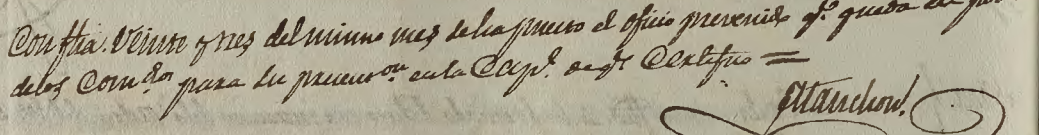 Con fha. Veinte y tres del mismo mes se ha puesto el oficio prevenido q.e queda en
de los Com.dos para su presens.on en la Cap.l de q.e Certifico =
Manchon!